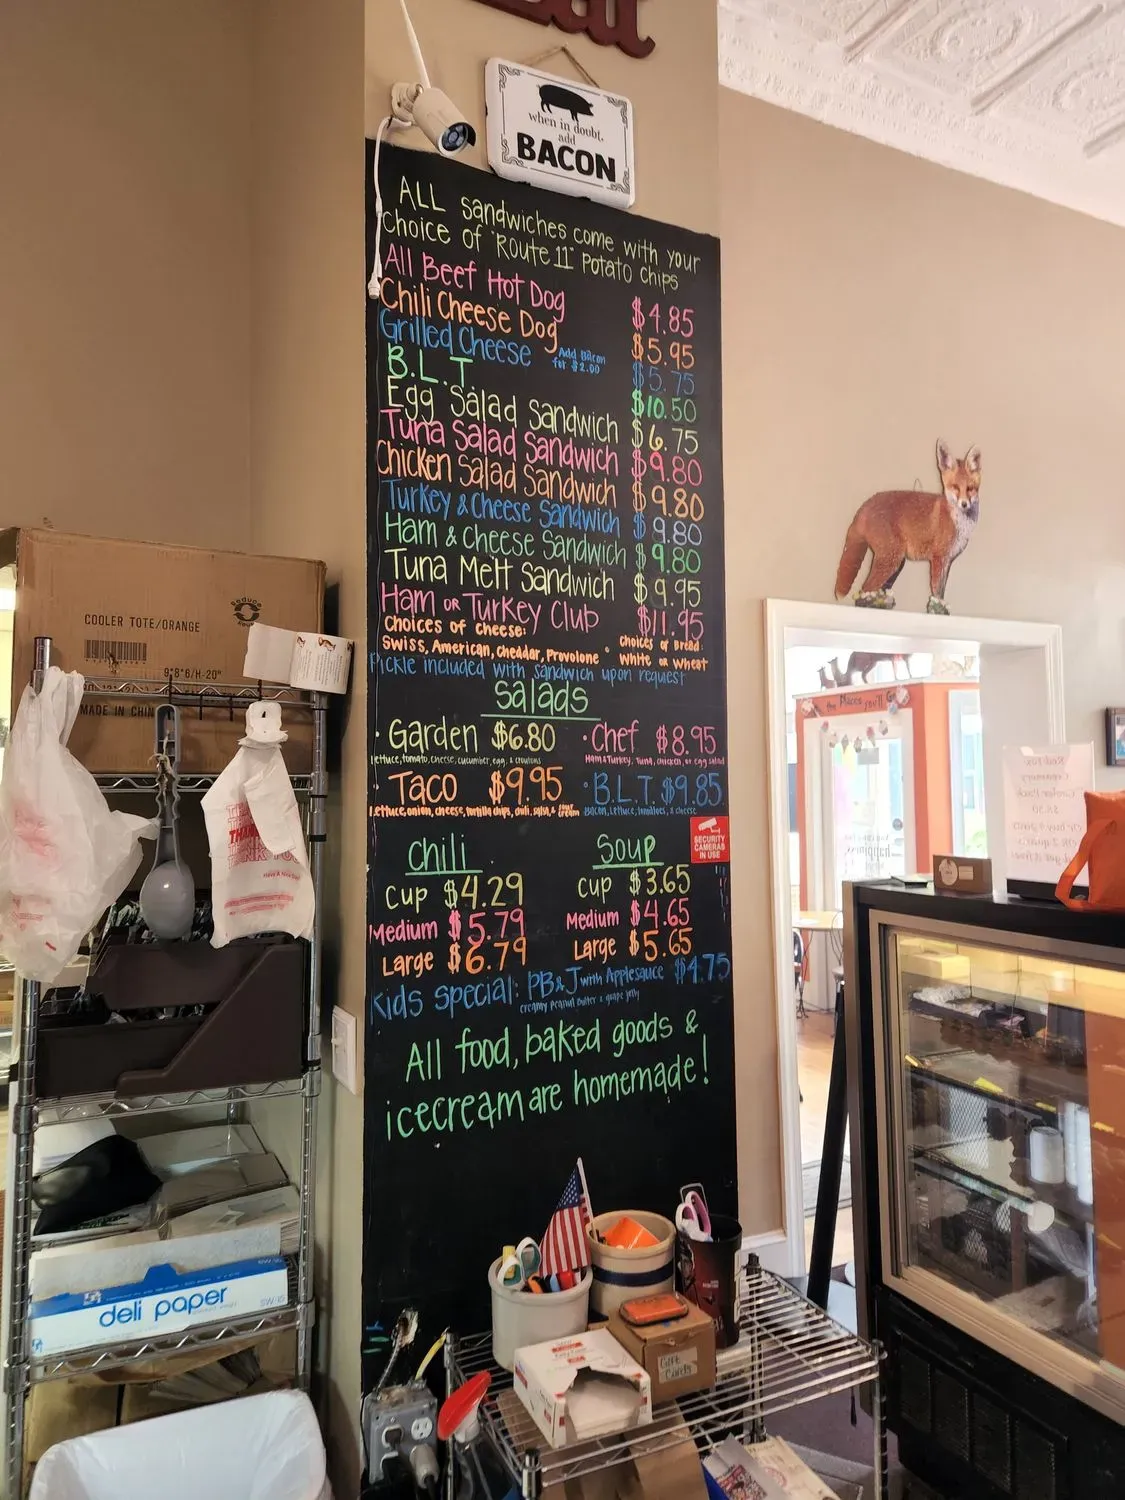 when in doubt,
add
BACON
ALL sandwiches come with your
choice of "Route 11" Potato chips
All Beef Hot Dog $4.85
Chili Cheese Dog $5.95
Grilled Cheese Add Bacon for $2.00 $5.75
B.L.T. $10.50
Egg Salad Sandwich $6.75
Tuna Salad Sandwich $9.80
Chicken Salad Sandwich $9.80
Turkey & Cheese Sandwich $9.80
Ham & Cheese Sandwich $9.80
Tuna Melt Sandwich $9.95
Ham or Turkey Club $11.95
Choices of Cheese:
Swiss, American, Cheddar, Provolone
• Choices of Bread:
White or Wheat
Pickle included with sandwich upon request
Salads
• Garden $6.80
lettuce, tomato, cheese, cucumber, egg, & croutons
• Chef $8.95
Ham & Turkey, Tuna, chicken, or egg salad
Taco $9.95
Lettuce, onion, cheese, tortilla chips, chili, salsa, & sour cream
• B.L.T. $9.85
Bacon, Lettuce, tomatoes, & cheese
SECURITY
CAMERAS
IN USE
Chili
Cup $4.29
Medium $5.79
Large $6.79
Soup
Cup $3.65
Medium $4.65
Large $5.65
Kids Special: PB&J with Applesauce $4.75
creamy Peanut butter & grape jelly
All food, baked goods &
icecream are homemade!
COOLER TOTE/ORANGE
9*8*6/H-20"
MADE IN CHIN
Reduce
THANK
Have A Nice Day
deli paper
Gift
Cards
the Places you'll Go
happiness